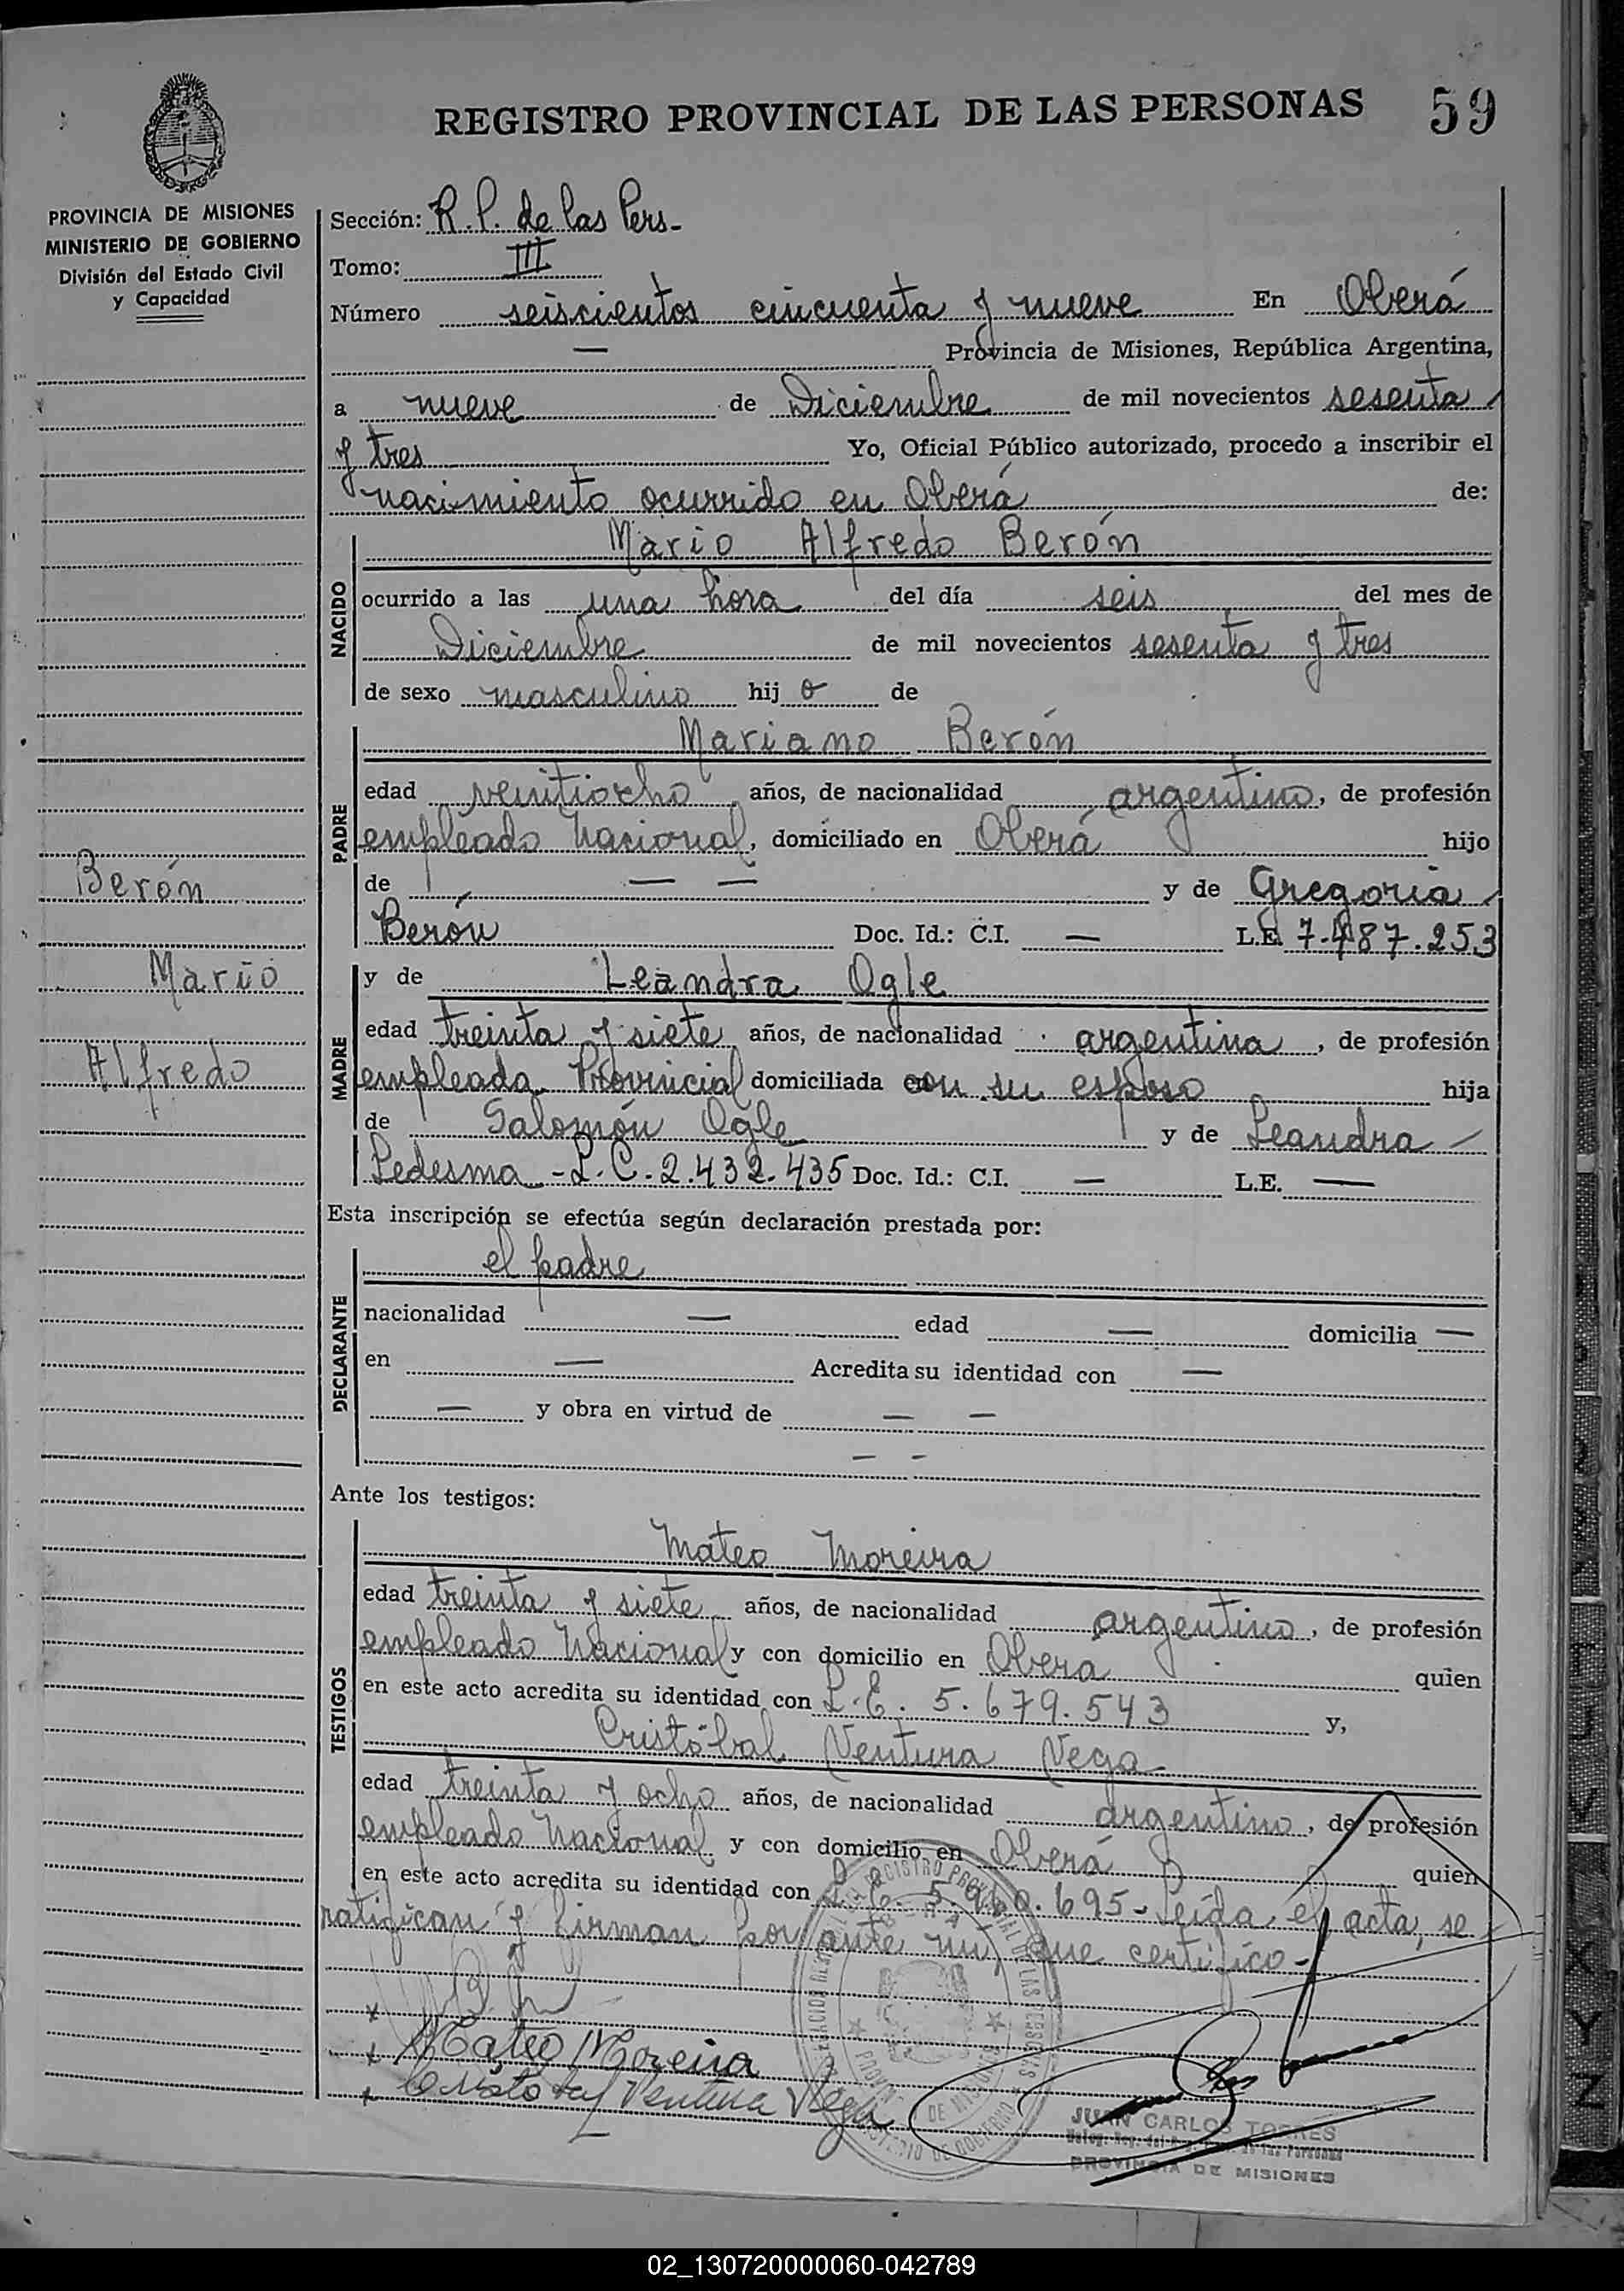 REGISTRO PROVINCIAL DE LAS PERSONAS 59
PROVINCIA DE MISIONES
MINISTERIO DE GOBIERNO
División del Estado Civil
y Capacidad
Sección: R. P. de las Pers-
Tomo: III
Número seiscientos cincuenta y nueve En Oberá
— Provincia de Misiones, República Argentina,
a nueve de Diciembre de mil novecientos sesenta
y tres Yo, Oficial Público autorizado, procedo a inscribir el
nacimiento ocurrido en Oberá de:
NACIDO
Mario Alfredo Berón
ocurrido a las una hora del día seis del mes de
Diciembre de mil novecientos sesenta y tres
de sexo masculino hij o de
PADRE
Mariano Berón
edad veintiocho años, de nacionalidad argentino, de profesión
empleado Nacional, domiciliado en Oberá hijo
de — — y de Gregoria
Berón Doc. Id.: C.I. — L.E. 7.487.253
Berón
Mario
Alfredo
MADRE
y de Leandra Ogle
edad treinta y siete años, de nacionalidad argentina, de profesión
empleada Provincial domiciliada con su esposo hija
de Salomón Ogle y de Leandra —
Ledesma - L. C. 2.432.435 Doc. Id.: C.I. — L.E. —
Esta inscripción se efectúa según declaración prestada por:
DECLARANTE
el padre
nacionalidad — edad — domicilia —
en — Acredita su identidad con —
— y obra en virtud de — —
— —
Ante los testigos:
TESTIGOS
Mateo Moreira
edad treinta y siete años, de nacionalidad argentino, de profesión
empleado Nacional y con domicilio en Obera quien
en este acto acredita su identidad con L. E. 5.679.543 y,
Cristóbal Ventura Vega
edad treinta y ocho años, de nacionalidad argentino, de profesión
empleado Nacional y con domicilio en Oberá quien
en este acto acredita su identidad con 695- Leída el acta, se
ratifican y firman por ante mi, que certifico-
x
x Mateo Moreira
x Cristobal Ventura Vega
JUAN CARLOS TORRES
PROVINCIA DE MISIONES
02_130720000060-042789